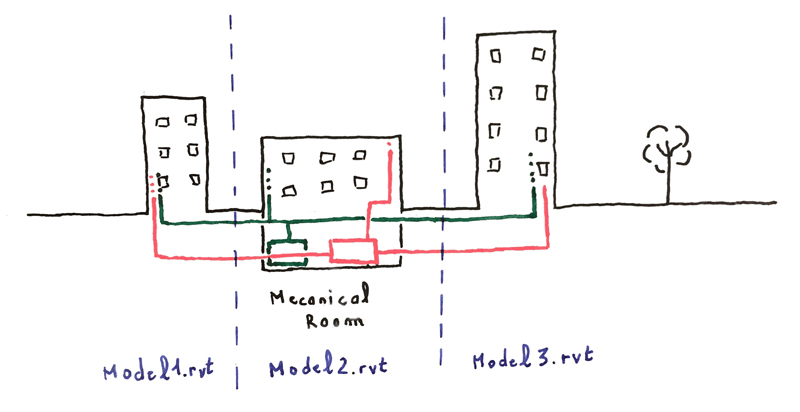 Mecanical
Room
Model1.rvt
Model2.rvt
Model3.rvt